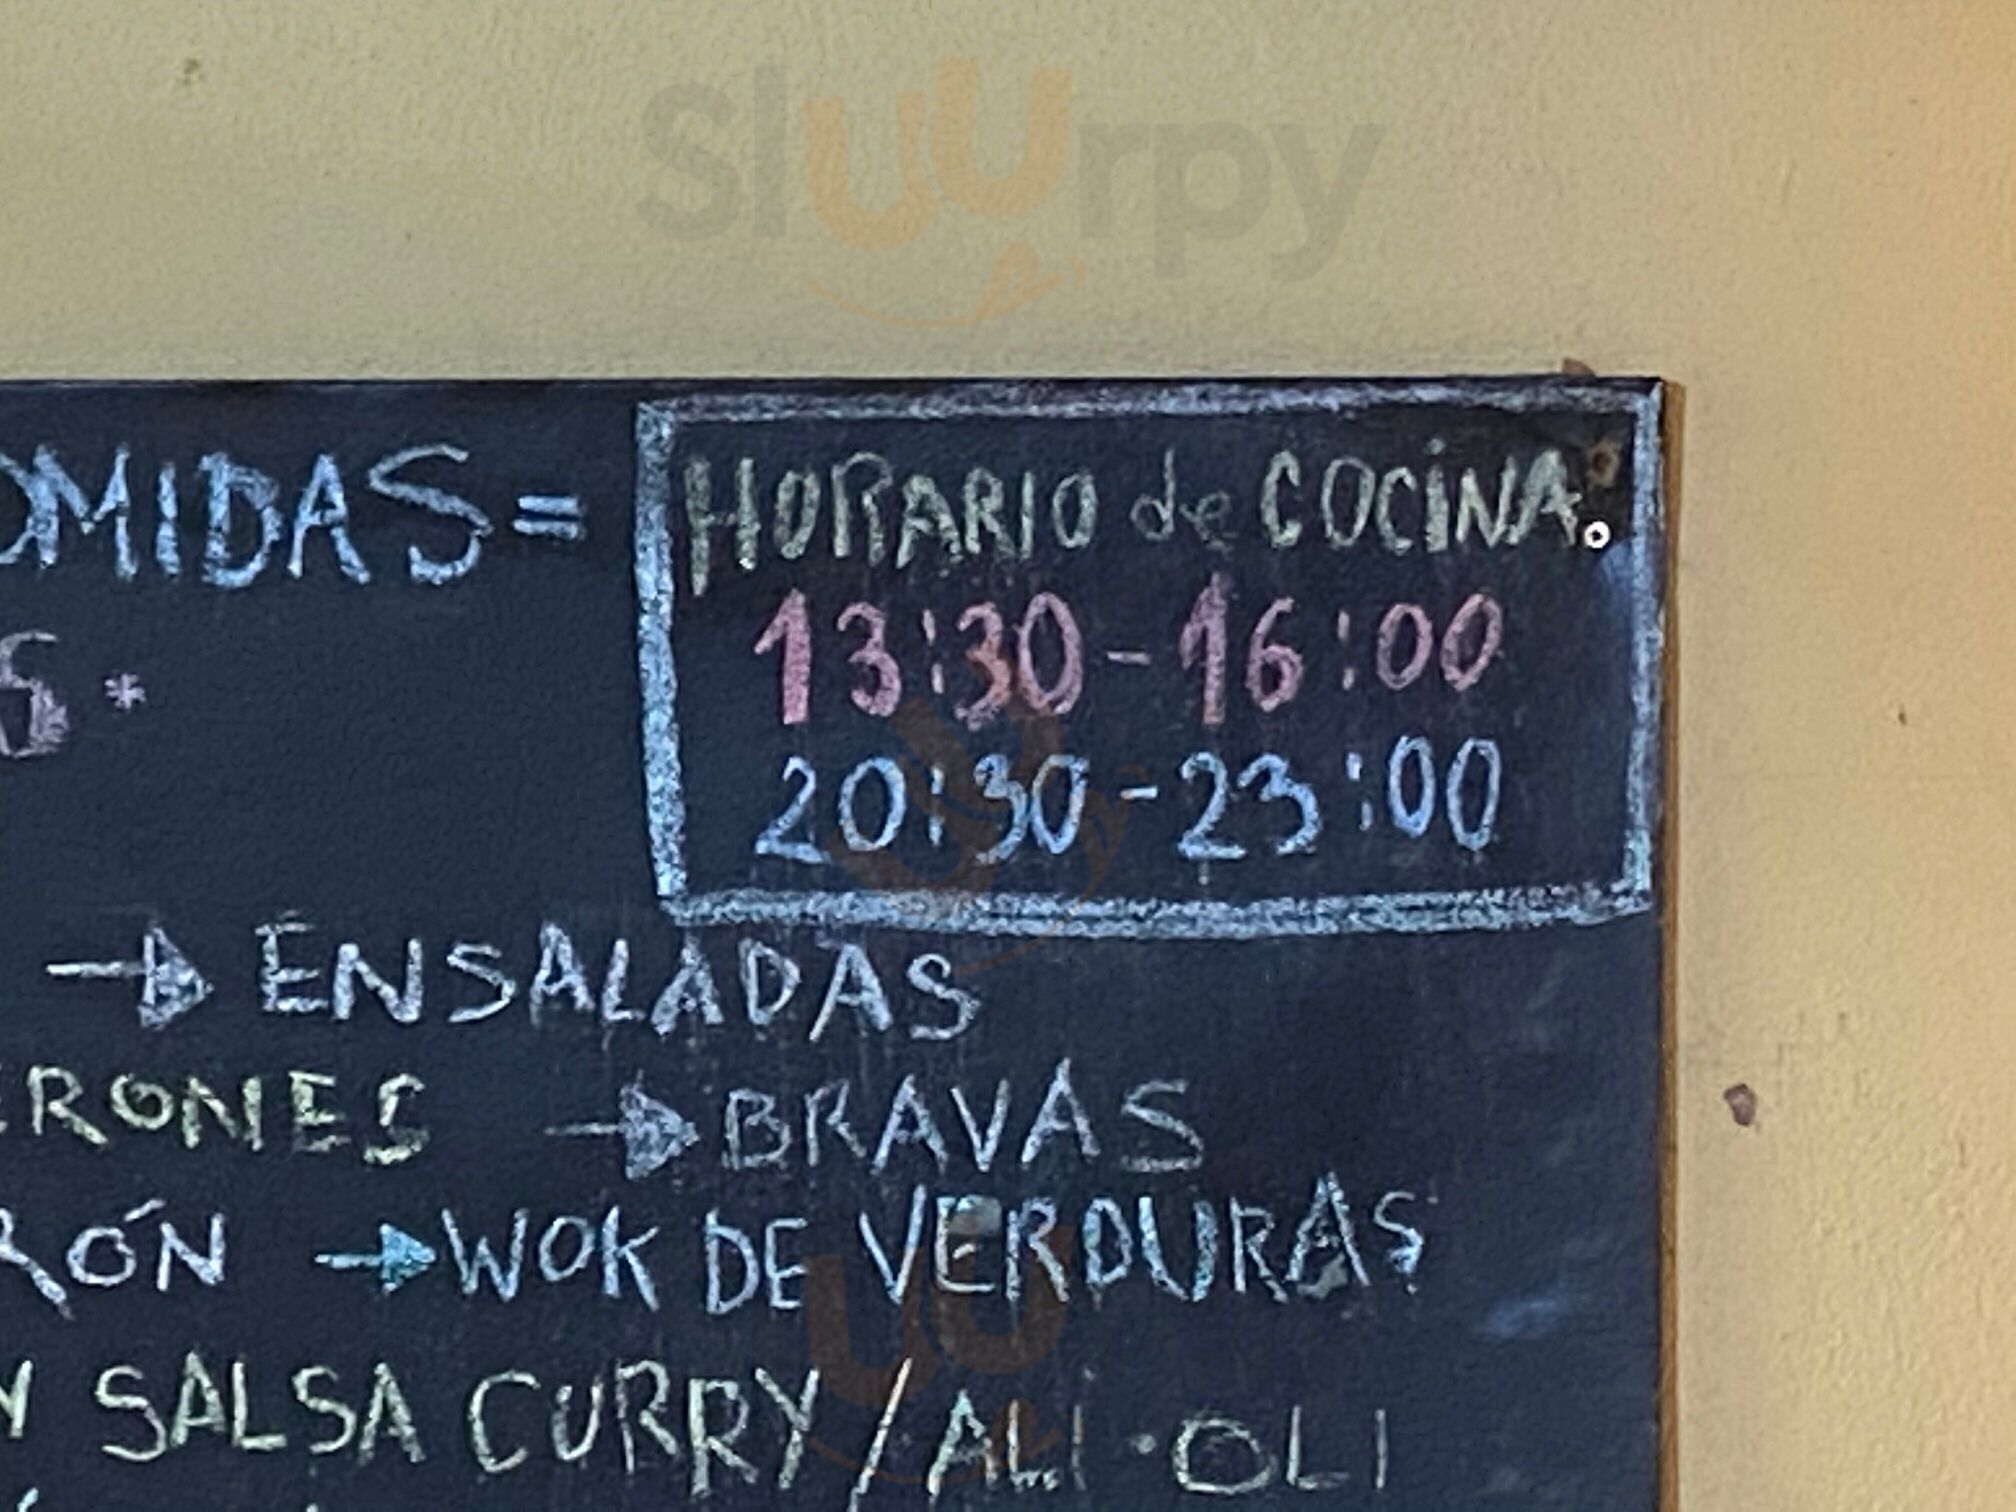 Sluurpy
COMIDAS= HORARIO de COCINA.
13:30-16:00
20:30-23:00
→ ENSALADAS
→ BRAVAS
→ WOK DE VERDURAS
Y SALSA CURRY / ALI·OLI